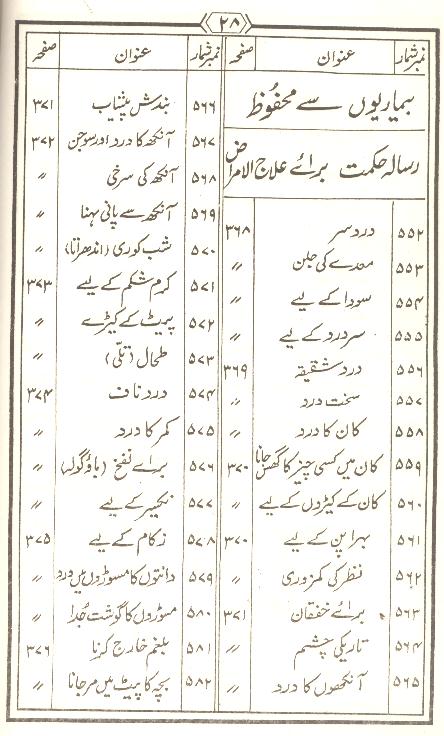 ۲۸
نمبر شمار عنوان صفحہ
بیماریوں سے محفوظ
رسالہ حکمت برائے علاج الامراض
۵۵۲ درد سر ۳۶۸
۵۵۳ معدے کی جلن 〃
۵۵۴ سودا کے لیے 〃
۵۵۵ سر درد کے لیے 〃
۵۵۶ درد شقیقہ ۳۶۹
۵۵۷ سخت درد 〃
۵۵۸ کان کا درد 〃
۵۵۹ کان میں کسی چیز کا گھس جانا ۳۷۰
۵۶۰ کان کے کیڑوں کے لیے 〃
۵۶۱ بہرا پن کے لیے ۳۷۰
۵۶۲ نظر کی کمزوری 〃
۵۶۳ برائے خفقان ۳۷۱
۵۶۴ تاریکی چشم 〃
۵۶۵ آنکھوں کا درد 〃
نمبر شمار عنوان صفحہ
۵۶۶ بندش پیشاب ۳۷۱
۵۶۷ آنکھ کا درد اور سوجن ۳۷۲
۵۶۸ آنکھ کی سرخی 〃
۵۶۹ آنکھ سے پانی بہنا 〃
۵۷۰ شب کوری (اندھراتا) 〃
۵۷۱ کرم شکم کے لیے ۳۷۳
۵۷۲ پیٹ کے کیڑے 〃
۵۷۳ طحال (تلّی) 〃
۵۷۴ درد ناف ۳۷۴
۵۷۵ کمر کا درد 〃
۵۷۶ برائے نفخ (باؤ گولہ) 〃
۵۷۷ نکسیر کے لیے 〃
۵۷۸ زکام کے لیے ۳۷۵
۵۷۹ دانتوں کا مسوڑوں میں درد 〃
۵۸۰ مسوڑوں کا گوشت جُدا 〃
۵۸۱ بلغم خارج کرنا ۳۷۶
۵۸۲ بچہ کا پیٹ میں مر جانا 〃